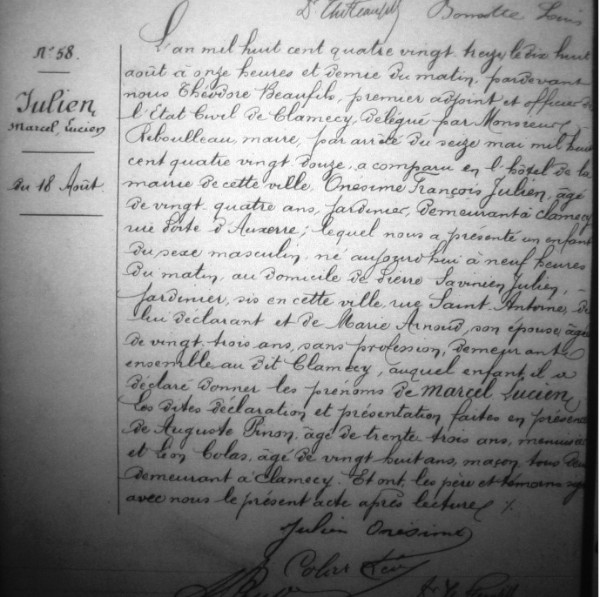 Bonnotte Louis
N° 58.
Julien,
Marcel, Lucien
du 18 Août.
L'an mil huit cent quatre vingt treize, le dix huit
août à onze heures et demie du matin, pardevant
nous Théodore Beaufils, premier adjoint et officier de
l'Etat Civil de Clamecy, délégué par Monsieur
Reboulleau, maire, par arrêté du seize mai mil huit
cent quatre vingt douze, a comparu en l'hôtel de la
mairie de cette ville, Onésime François Julien, âgé
de vingt quatre ans, jardinier, demeurant à Clamecy
rue Porte d'Auxerre; lequel nous a présenté un enfant
du sexe masculin, né aujourd'hui à neuf heures
du matin, au domicile de Pierre Savinien Julien,
jardinier, sis en cette ville, rue Saint Antoine, de
lui déclarant et de Marie Arnoud, son épouse, âgée
de vingt trois ans, sans profession, demeurant
ensemble au dit Clamecy, auquel enfant il a
déclaré donner les prénoms de Marcel Lucien
Les dites déclaration et présentation faites en présence
de Auguste Pinon, âgé de trente trois ans,
et Léon Colas, âgé de vingt huit ans, maçon, tous deux
demeurant à Clamecy. Et ont, les père et témoins signé
avec nous le présent acte après lecture ./.
Julien Onésime
Colas Léon